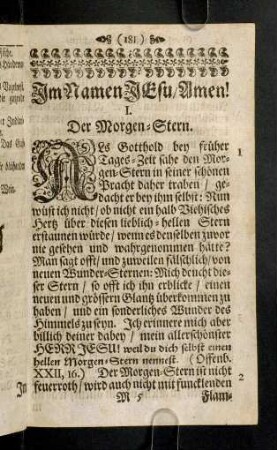 (181)
Im Namen JEsu/Amen!
I.
Der Morgen-Stern.
ALs Gotthold bey früher
Tages-Zeit sahe den Mor-
gen-Stern in seiner schönen
Pracht daher traben/ ge-
dacht er bey ihm selbst: Nun
wüst ich nicht/ ob nicht ein halb Viehisches
Hertz über diesen lieblich-hellen Stern
erstaunen würde/ wenn es denselben zuvor
nie gesehen und wahrgenommen hätte?
Man sagt offt/ und zuweilen fälschlich/ von
neuen Wunder-Sternen: Mich deucht die-
ser Stern/ so offt ich ihn erblicke/ einen
neuen und grössern Glantz überkommen zu
haben/ und ein sonderliches Wunder des
Himmels zu seyn. Ich erinnere mich aber
billich deiner dabey/ mein allerschönster
HERR JESU! weil du dich selbst einen
hellen Morgen-Stern nennest. (Offenb.
XXII, 16.) Der Morgen-Stern ist nicht
feuerroth/ wird auch nicht mit funcklenden
M 5 Flam-
1
2